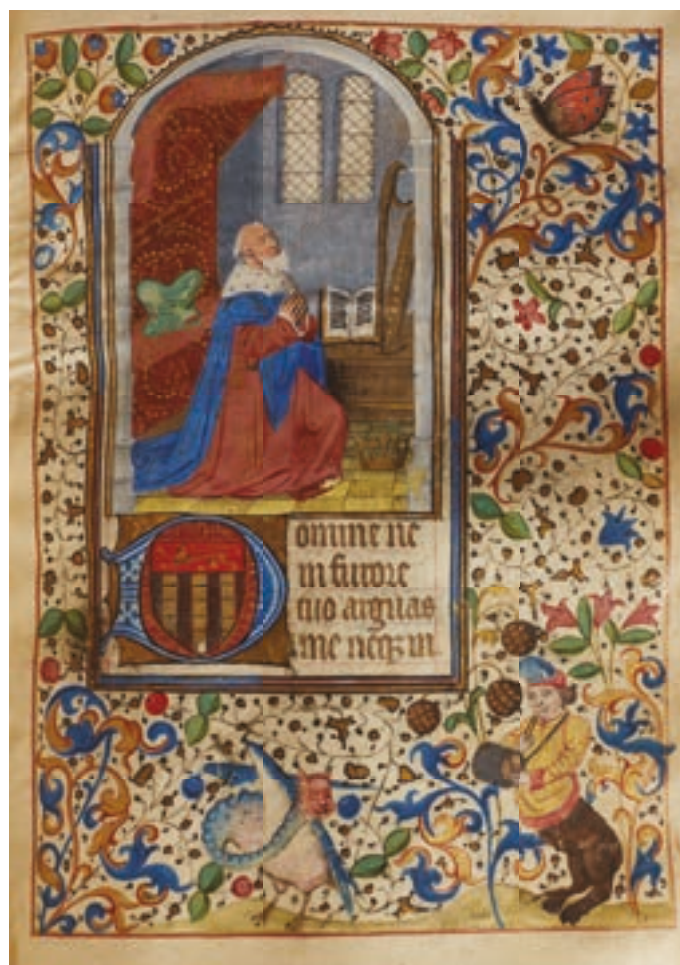 Domine ne
in furore
tuo arguas
me neqz in